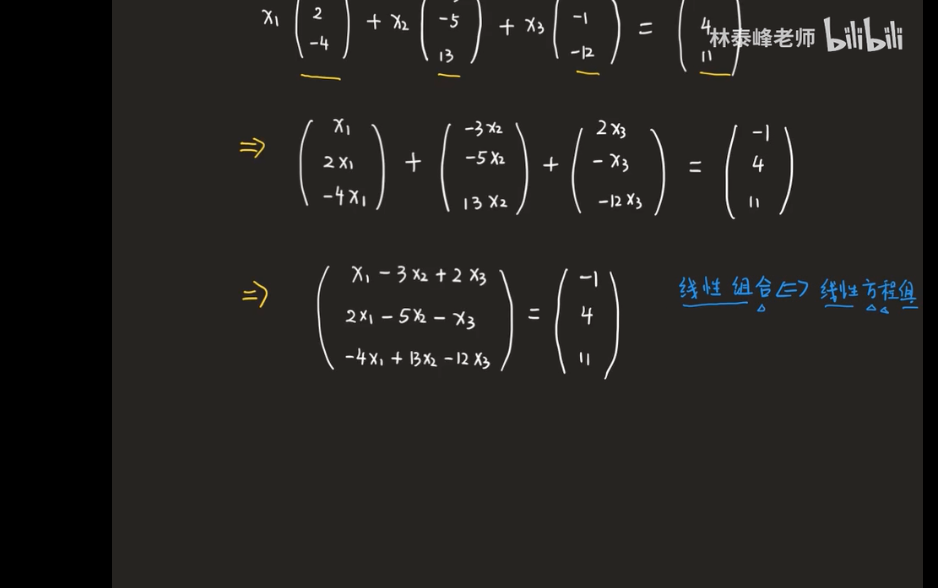 x₁ (2 -4) + x₂ (-5 13) + x₃ (-1 -12) = (4 11)
林泰峰老师 bilibili
⇒ (x₁ 2x₁ -4x₁) + (-3x₂ -5x₂ 13x₂) + (2x₃ -x₃ -12x₃) = (-1 4 11)
⇒ (x₁ - 3x₂ + 2x₃
2x₁ - 5x₂ - x₃
-4x₁ + 13x₂ - 12x₃) = (-1 4 11)
线性组合 ⇔ 线性方程组